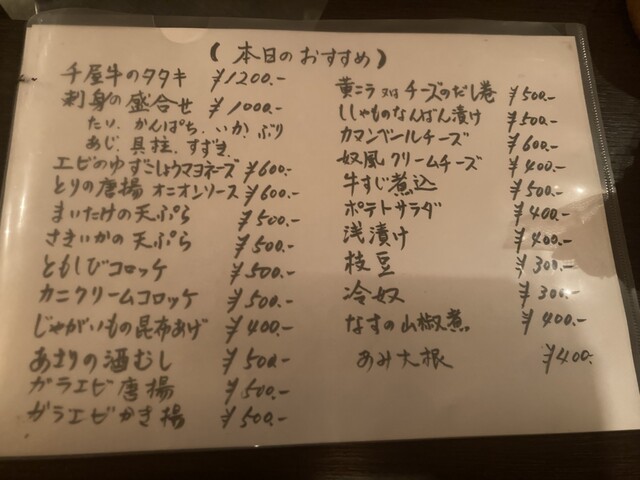 (本日のおすすめ)
千屋牛のタタキ ¥1200.-
刺身の盛合せ ¥1000.-
たい、かんぱち、いか、ぶり
あじ、貝柱、すずき、
エビのゆずこしょウマヨネーズ ¥600.-
とりの唐揚 オニオンソース ¥600.-
まいたけの天ぷら ¥500.-
さきいかの天ぷら ¥500.-
ともしびコロッケ ¥500.-
カニクリームコロッケ ¥500.-
じゃがいもの昆布あげ ¥400.-
あさりの酒むし ¥500.-
ガラエビ唐揚 ¥500.-
ガラエビかき揚 ¥500.-
黄ニラ 又は チーズのだし巻 ¥500.-
ししゃものなんばん漬け ¥500.-
カマンベールチーズ ¥600.-
奴風クリームチーズ ¥400.-
牛すじ煮込 ¥500.-
ポテトサラダ ¥400.-
浅漬け ¥400.-
枝豆 ¥300.-
冷奴 ¥300.-
なすの山椒煮 ¥400.-
あみ大根 ¥400.